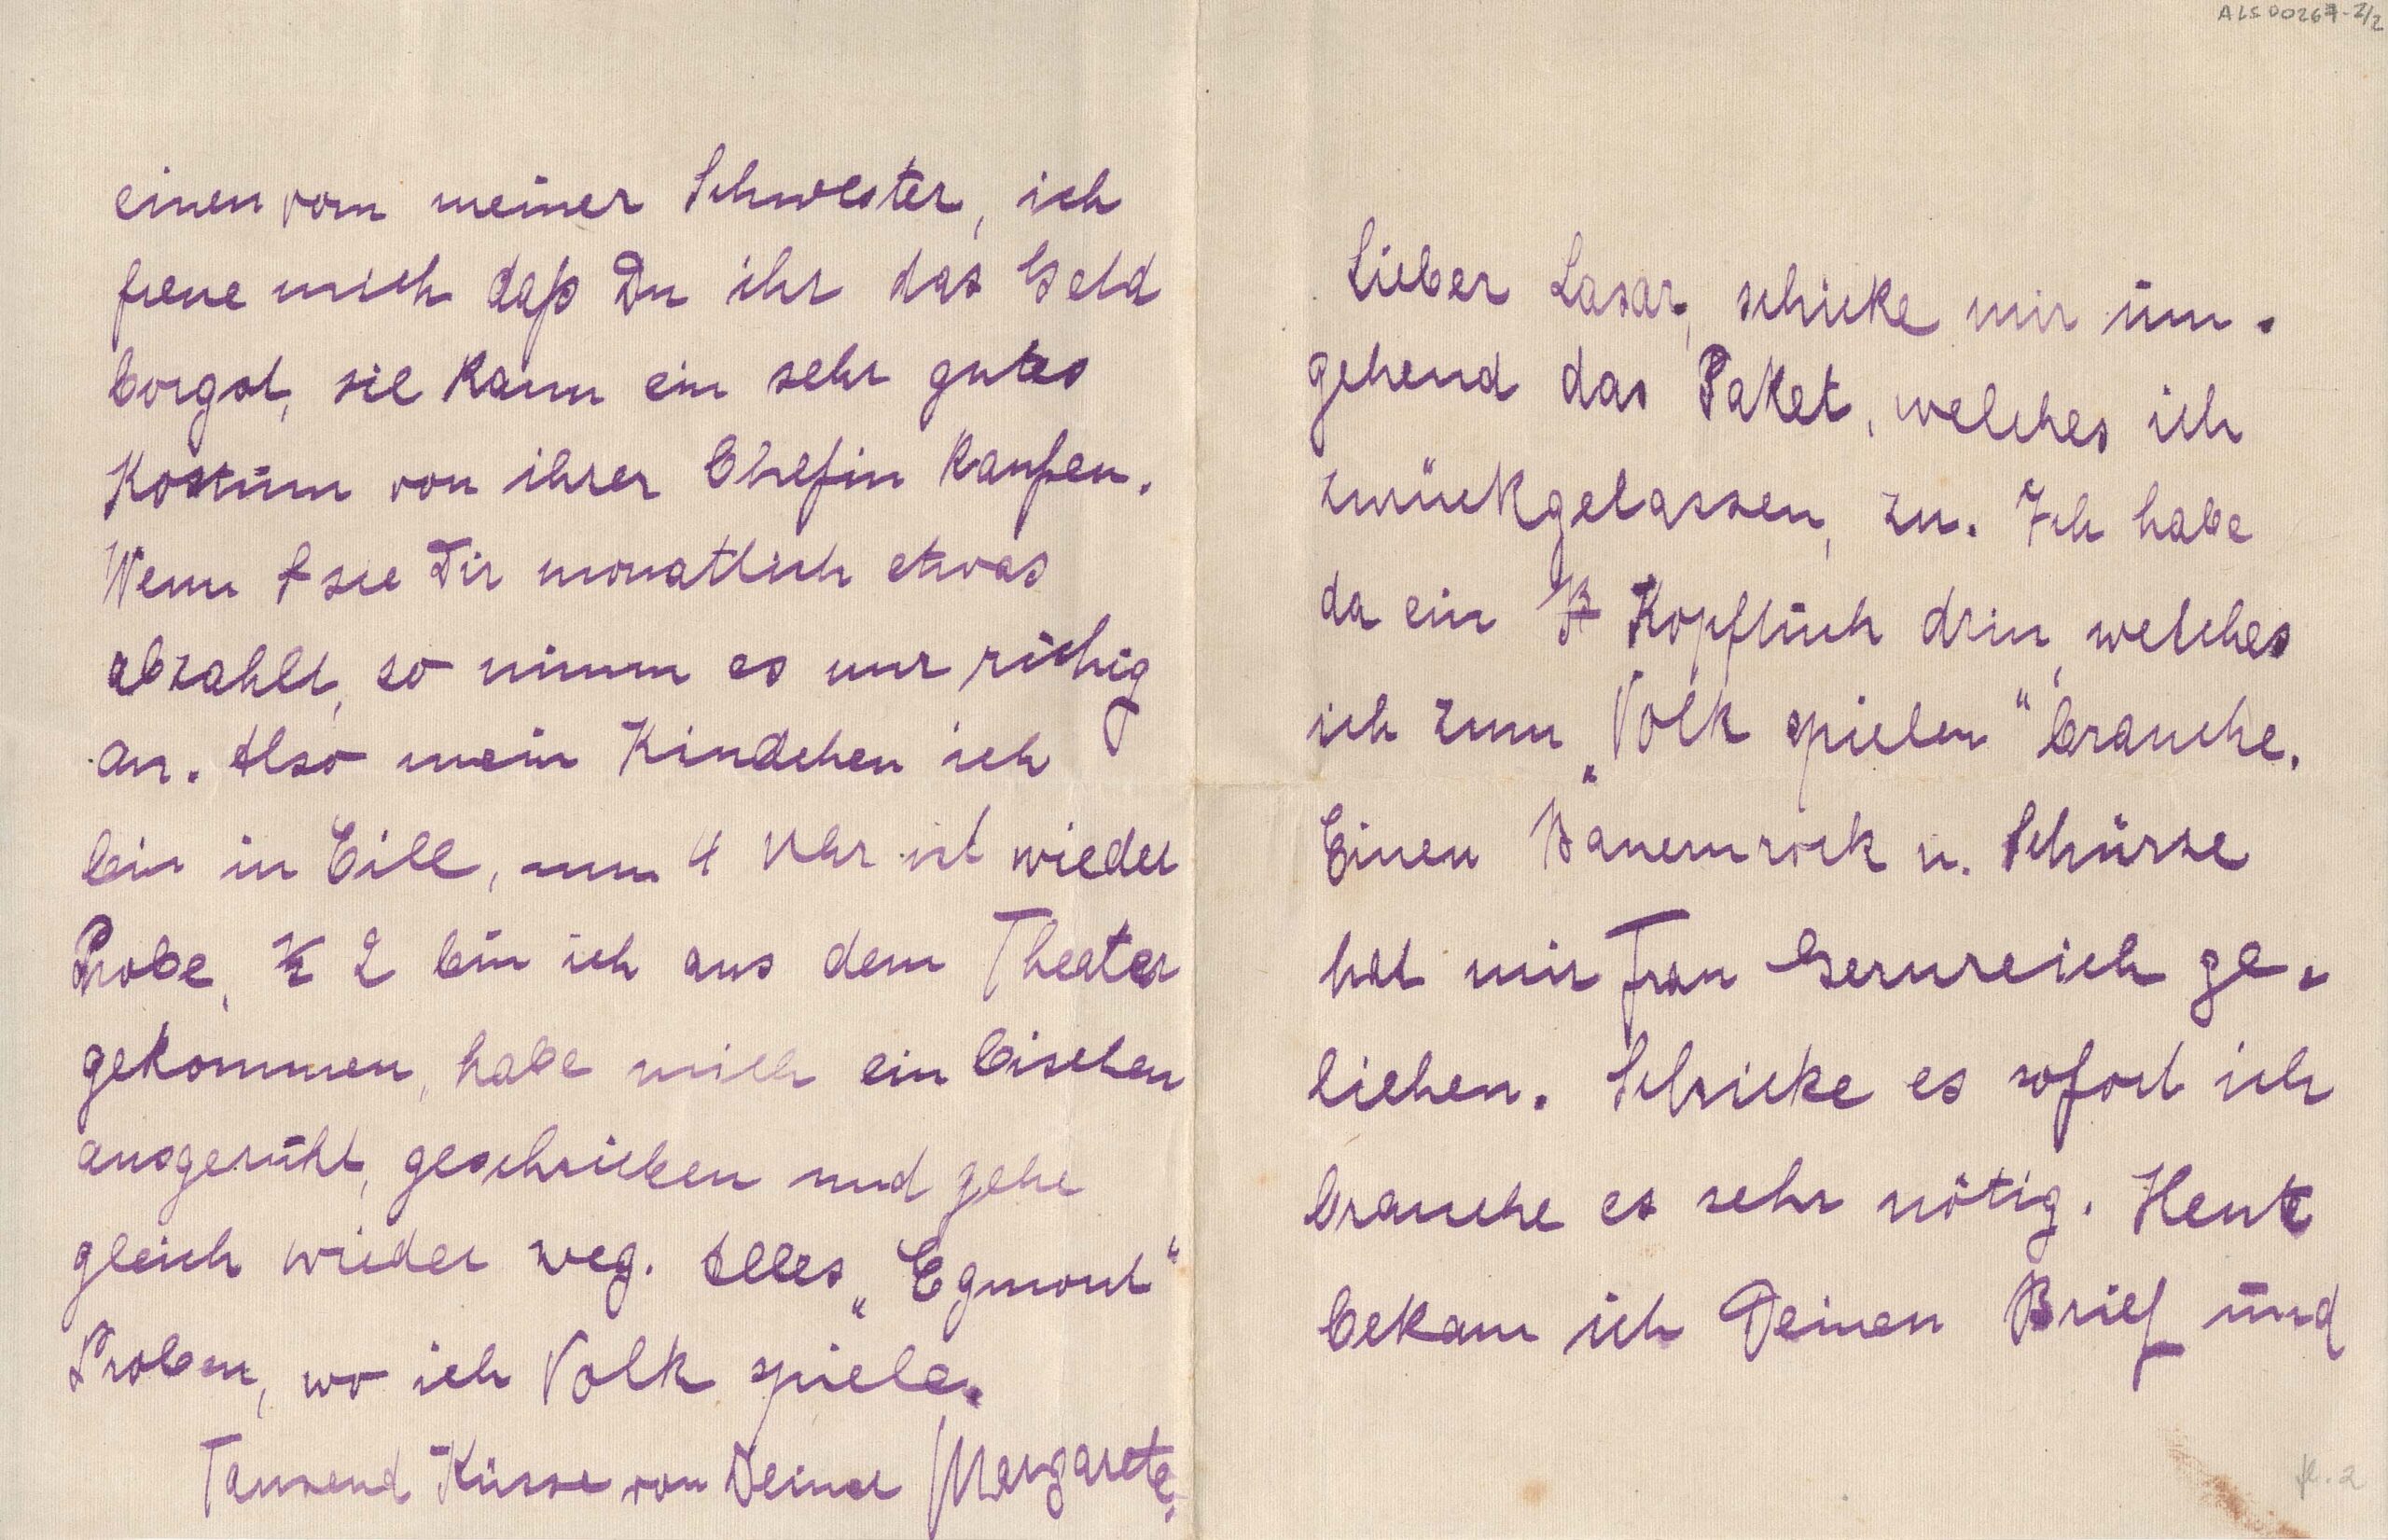 ALS00267-2/2
Lieber Lasar, schicke mir um-
gehend das Paket, welches ich
zurückgelassen, zu. Ich habe
da ein Kopftuch drin, welches
ich zum „Volk spielen" brauche.
Einen Bauernrock u. Schürze
hat mir Frau Gernreich ge-
liehen. Schicke es sofort ich
brauche es sehr nötig. Heute
bekam ich Deinen Brief und
einen vom meiner Schwester, ich
freue mich daß Du ihr das Geld
borgst, sie kann ein sehr gutes
Kostüm von ihrer Chefin kaufen.
Wenn sie Dir monatlich etwas
abzahlt, so nimm es nur ruhig
an. Also mein Kindchen ich
bin in Eile, um 4 Uhr ist wieder
Probe, ½ 2 bin ich aus dem Theater
gekommen, habe mich ein bischen
ausgeruht, geschrieben und gehe
gleich wieder weg. Alles „Egmont"
Proben, wo ich Volk spiele.
Tausend Küsse von Deiner Margarete.
fl. 2